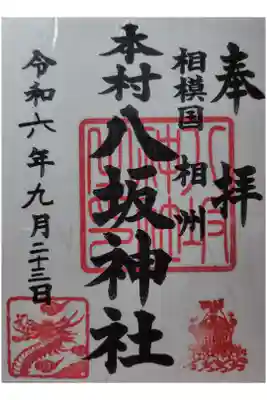 奉拝
相模国 相洲
本村八坂神社
令和六年九月二十三日